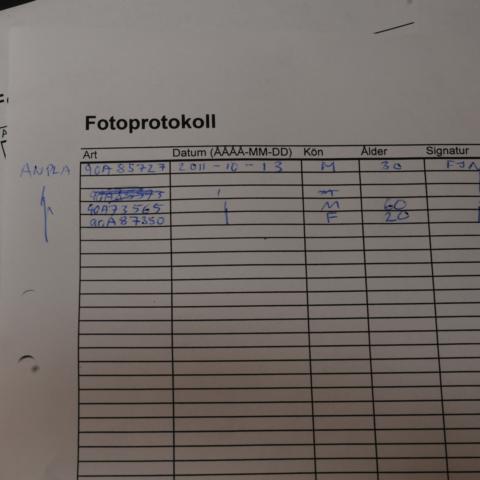 Fotoprotokoll
Art Datum (ÅÅÅÅ-MM-DD) Kön Ålder Signatur
ANPLA 90A85727 2011-10-13 M 30
90A73565 M 60
90A87350 F 20